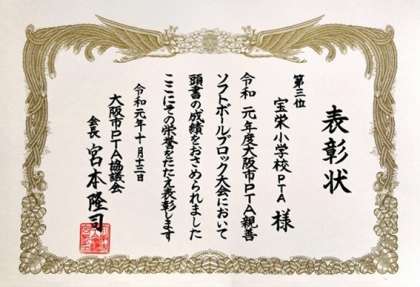 表彰状
第三位
宝栄小学校PTA 様
令和元年度大阪市PTA親善
ソフトボールブロック大会において
頭書の成績をおさめられました
ここにその栄誉をたたえ表彰します
令和元年十月十三日
大阪市PTA協議会
会長 宮本隆司